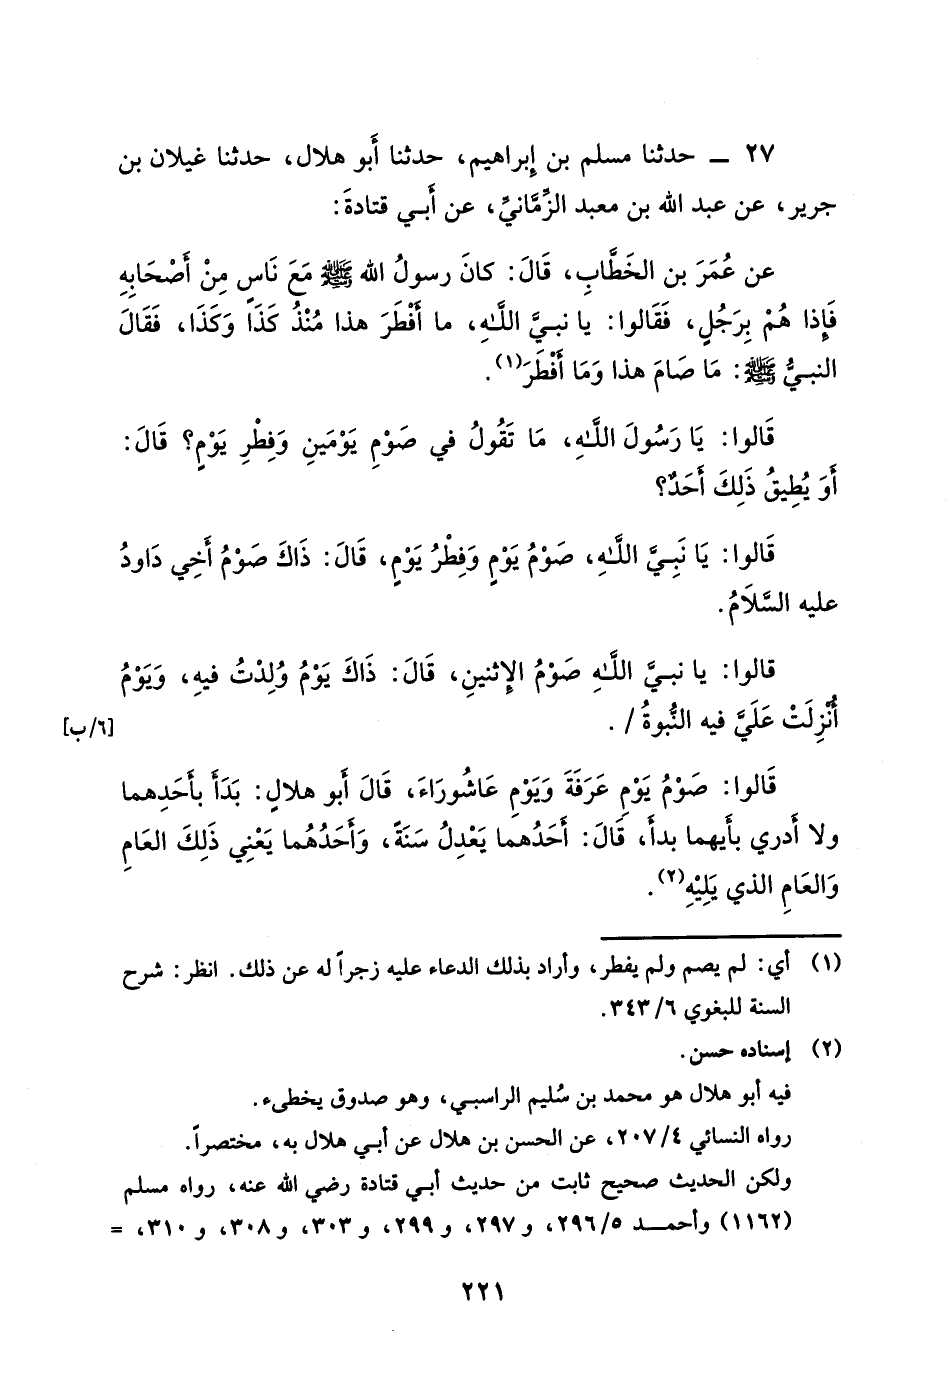 ٢٧ ــ حدثنا مسلم بن إبراهيم، حدثنا أَبو هلال، حدثنا غيلان بن
جرير، عن عبد الله بن معبد الزِّمَّانيِّ، عن أَبـي قتادةَ:
عن عُمَرَ بن الخَطَّابِ، قَالَ: كانَ رسولُ الله ﷺ مَعَ نَاسٍ مِنْ أَصْحَابِهِ
فَإِذا هُمْ بِرَجُلٍ، فَقَالوا: يا نبـيَّ اللَّـهِ، ما أَفْطَرَ هذا مُنْذُ كَذَا وَكَذَا، فَقَالَ
النبـيُّ ﷺ: مَا صَامَ هذا وَمَا أَفْطَرَ(١).
قَالوا: يَا رَسُولَ اللَّـهِ، مَا تَقُولُ في صَوْمِ يَوْمَينِ وَفِطْرِ يَوْمٍ؟ قَالَ:
أَوَ يُطِيقُ ذَلِكَ أَحَدٌ؟
قَالوا: يَا نَبِـيَّ اللَّـهِ، صَوْمُ يَوْمٍ وَفِطْرُ يَوْمٍ، قَالَ: ذَاكَ صَوْمُ أَخِي دَاودُ
عليه السَّلَامُ.
قالوا: يا نبـيَّ اللَّـهِ صَوْمُ الإِثنينِ، قَالَ: ذَاكَ يَوْمُ وُلِدْتُ فيهِ، وَيَوْمُ
أُنْزِلَتْ عَلَيَّ فيه النُّبوةُ / . [٦/ب]
قَالوا: صَوْمُ يَوْمِ عَرَفَةَ وَيَوْمِ عَاشُورَاءَ، قَالَ أَبو هلالٍ: بَدَأَ بأَحَدِهما
ولا أَدري بأَيهما بدأَ، قَالَ: أَحَدُهما يَعْدِلُ سَنَةً، وَأَحَدُهُما يَعْنِي ذَلِكَ العَامِ
وَالعَامِ الذي يَلِيْهِ(٢).
(١) أي: لم يصم ولم يفطر، وأراد بذلك الدعاء عليه زجراً له عن ذلك. انظر: شرح
السنة للبغوي ٦/٣٤٣.
(٢) إسناده حسن.
فيه أبو هلال هو محمد بن سُليم الراسبـي، وهو صدوق يخطىء.
رواه النسائي ٤/٢٠٧، عن الحسن بن هلال عن أبـي هلال به، مختصراً.
ولكن الحديث صحيح ثابت من حديث أبي قتادة رضي الله عنه، رواه مسلم
(١١٦٢) وأحمـد ٥/٢٩٦، و ٢٩٧، و ٢٩٩، و ٣٠٣، و ٣٠٨، و ٣١٠، =
٢٢١